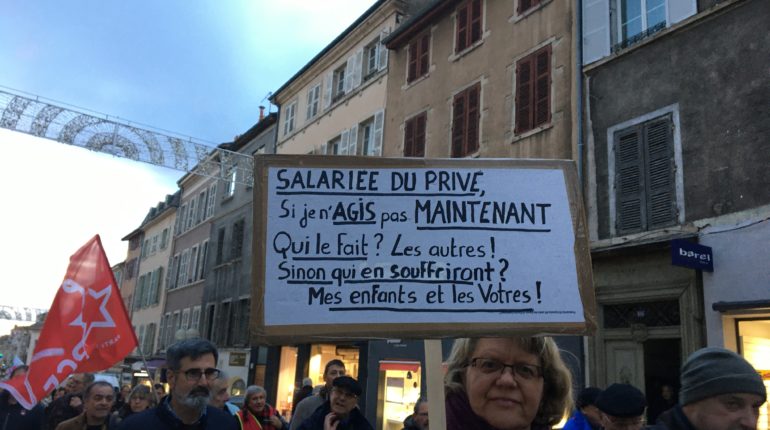 SALARIÉE DU PRIVÉ,
Si je n'AGIS pas MAINTENANT
Qui le Fait? Les autres!
Sinon qui en souffriront?
Mes enfants et les Vôtres!
PCF
barel